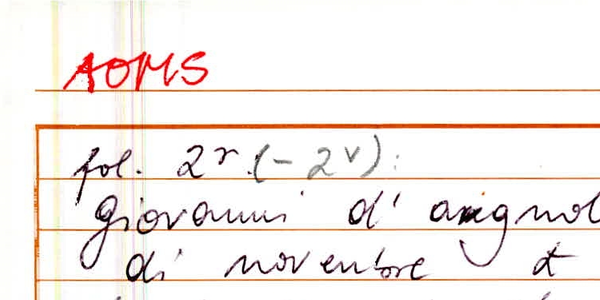 AOMS
fol. 2r (-2v):
Giovanni d' angnol
di novembre